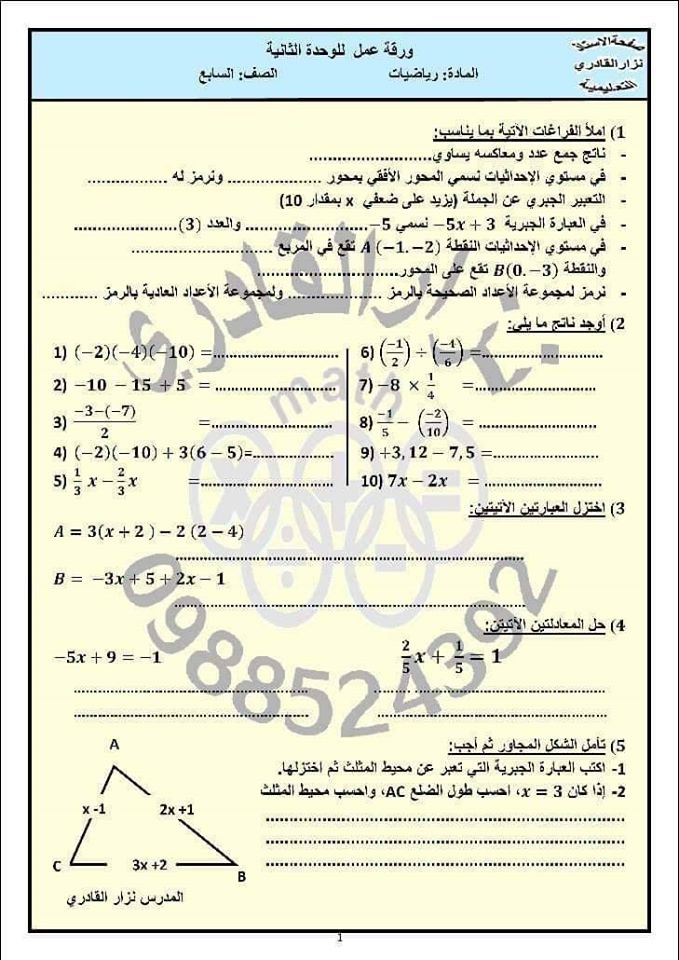 صفحة الاستاذ
نزار القادري
التعليمية
ورقة عمل للوحدة الثانية
المادة: رياضيات الصف: السابع
1) املأ الفراغات الآتية بما يناسب:
- ناتج جمع عدد ومعاكسه يساوي..........................
- في مستوي الإحداثيات نسمي المحور الأفقي بمحور .................. ونرمز له ................
- التعبير الجبري عن الجملة (يزيد على ضعفي x بمقدار 10)
- في العبارة الجبرية −5x + 3 نسمي −5 ........................ والعدد (3)......................
- في مستوي الإحداثيات النقطة A (−1. −2) تقع في المربع ........................
والنقطة B(0. −3) تقع على المحور........................
- نرمز لمجموعة الأعداد الصحيحة بالرمز .................. ولمجموعة الأعداد العادية بالرمز ............
2) أوجد ناتج ما يلي:
1) (−2)(−4)(−10) =..........................
6) (−1/2) ÷ (−4/6) =..........................
2) −10 − 15 + 5 = ..........................
7) −8 × 1/4 =..........................
3) −3−(−7)/2 =..........................
8) −1/5 − (−2/10) = ..........................
4) (−2)(−10) + 3(6 − 5)=..................
9) +3, 12 − 7, 5 =......................
5) 1/3 x − 2/3 x =..........................
10) 7x − 2x = ..........................
3) اختزل العبارتين الآتيتين:
A = 3(x + 2 ) − 2 (2 − 4)
................................................................
B = −3x + 5 + 2x − 1
................................................................
4) حل المعادلتين الآتيتن:
−5x + 9 = −1
2/5 x + 1/5 = 1
................................................
................................................
5) تأمل الشكل المجاور ثم أجب:
1- اكتب العبارة الجبرية التي تعبر عن محيط المثلث ثم اختزلها.
2- إذا كان x = 3، احسب طول الضلع AC، واحسب محيط المثلث
................................................
................................................
................................................
A
x -1
2x +1
C
3x +2
B
المدرس نزار القادري
1
نزار القادري
math
0988524392